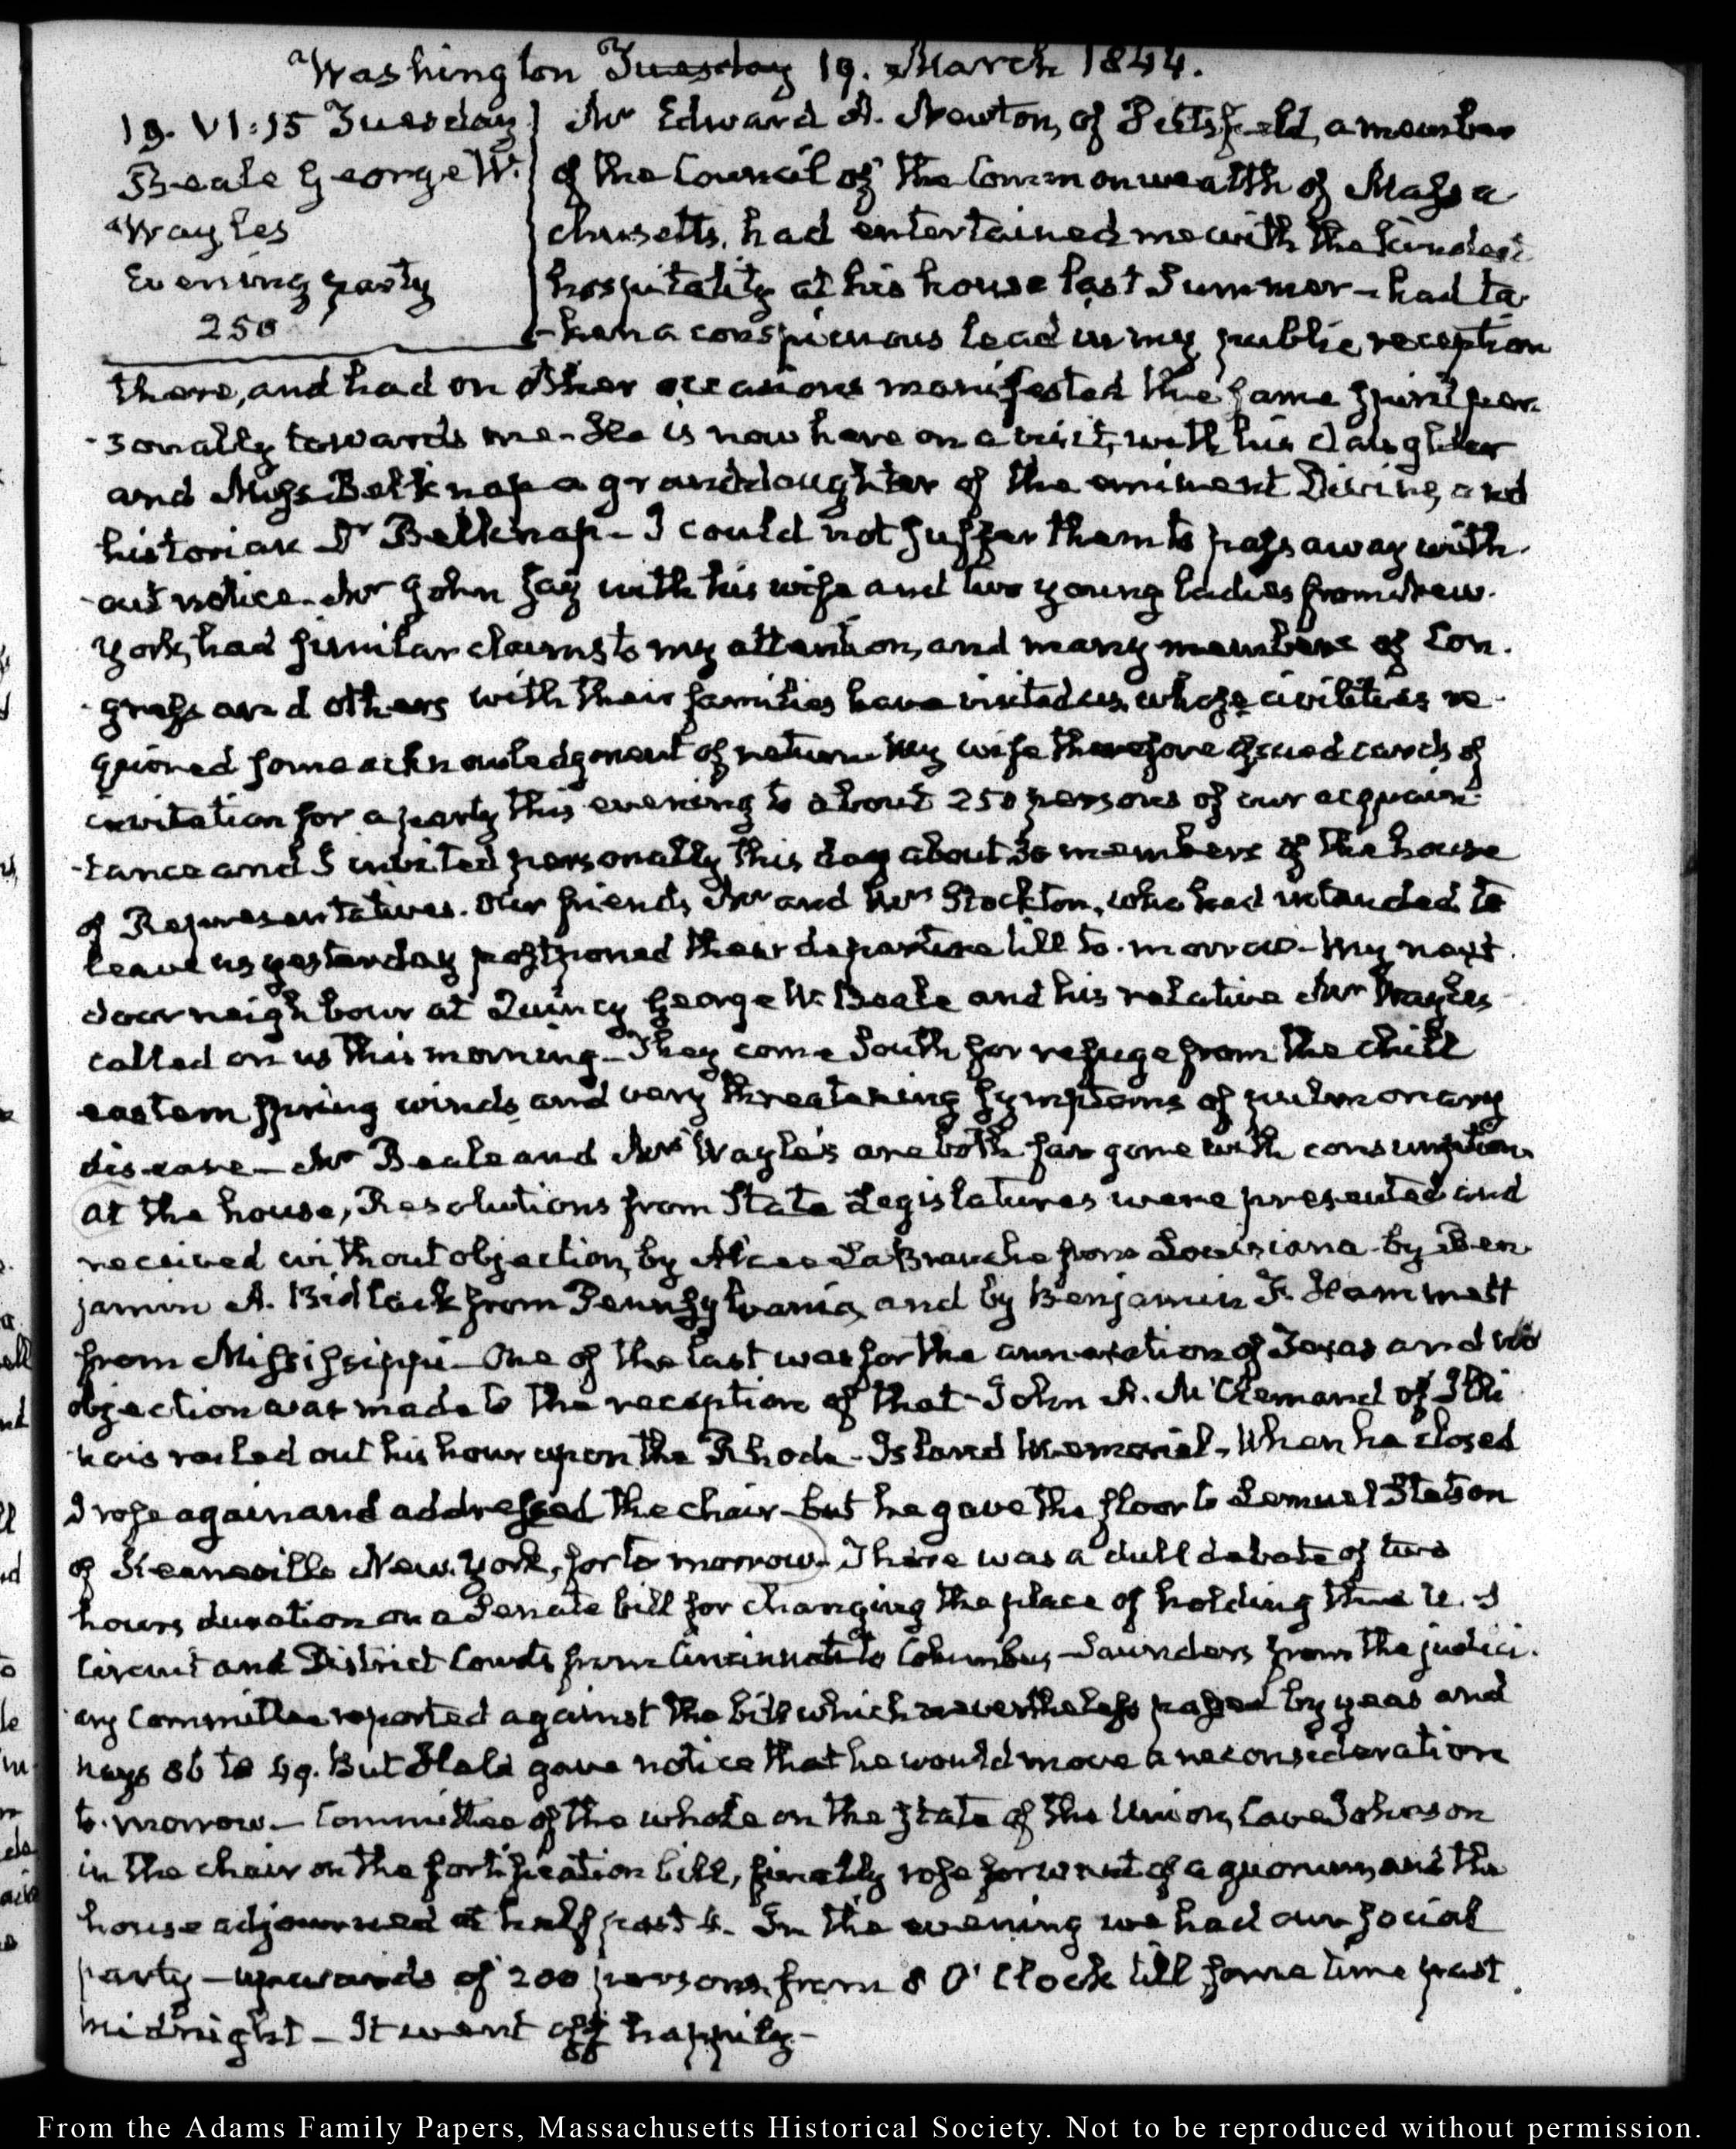 Washington Tuesday 19. March 1844.
19. VI:15 Tuesday
Beale George W.
Wayles
Evening party
250
Mr Edward A. Newton, of Pittsfield, a member
of the Council of the Commonwealth of Massa
chusetts, had entertained me with the kindest
hospitality at his house last Summer – had ta
-ken a conspicuous lead in my public reception
there, and had on other occasions manifested the same spirit per
-sonally towards me – He is now here on a visit, with his daughter
and Miss Belknap a granddaughter of the eminent Divine, and
historian Dr Belknap – I could not suffer them to pass away with-
-out notice. Mr John Jay with his wife and two young ladies from New-
York, had similar claims to my attention, and many members of Con-
-gress and others with their families have visited us, whose civilities re-
quired some acknowledgment of return. My wife therefore issued cards of
invitation for a party this evening to about 250 persons of our acquain-
-tance and I invited personally this day about 30 members of the house
of Representatives. Our friends, Mr and Mrs Stockton, who had intended to
leave us yesterday postponed their departure till to-morrow – My next
door neighbour at Quincy George W. Beale and his relative Mr Wayles
called on us this morning – They come South for refuge from the chill
eastern spring winds and very threatening symptoms of pulmonary
disease – Mr Beale and Mrs Wayles are both far gone with consumption.
At the house, Resolutions from State Legislatures were presented and
received without objection, by Alcee LaBranche from Louisiana by Ben
jamin A. Bidlack from Pennsylvania, and by Benjamin F. Hammett
from Mississippi – One of the last was for the annexation of Texas and no
objection was made to the reception of that – John A. McClernand of Illi
nois railed out his hour upon the Rhode-Island Memorial. When he closed
I rose again and addressed the chair – but he gave the floor to Lemuel Stetson
of Keeneville New-York, for to morrow. There was a dull debate of two
hours duration on a Senate bill for changing the place of holding the U. S
Circuit and District Courts from Cincinnati to Columbus – Saunders from the judici-
ary Committee reported against the bill which nevertheless passed by yeas and
nays 86 to 49. But Hale gave notice that he would move a reconsideration
to-morrow – Committee of the whole on the state of the Union, Cave Johnson
in the chair on the fortification bill, finally rose for want of a quorum, and the
house adjourned at half past 4. In the evening we had our social
party – upwards of 200 persons from 8 O'Clock till some time past
midnight – It went off happily –
From the Adams Family Papers, Massachusetts Historical Society. Not to be reproduced without permission.